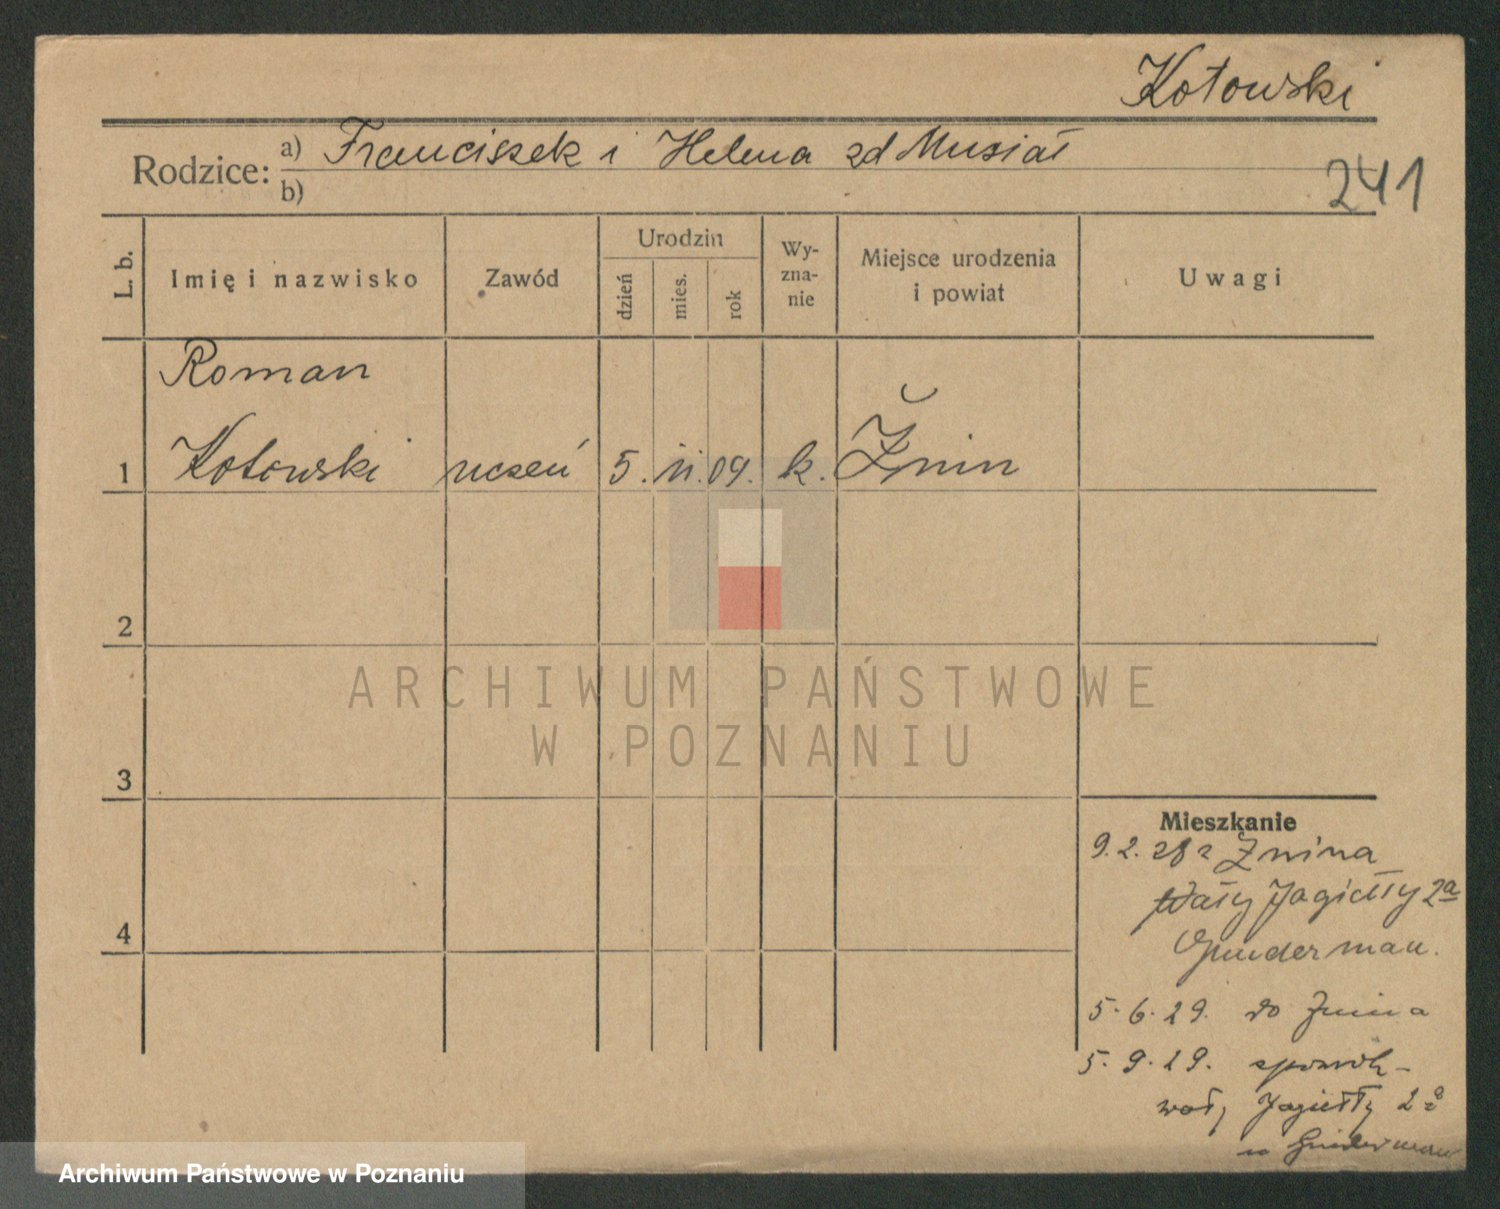 Kotowski
Rodzice: a) Franciszek i Helena zd Musiał
b)
241
L. b.
Imię i nazwisko
Zawód
Urodzin
dzień
mies.
rok
Wy-
zna-
nie
Miejsce urodzenia
i powiat
Uwagi
Roman
1 Kotowski uczeń 5. VI. 09. k. Żnin
2
3
4
ARCHIWUM PAŃSTWOWE
W POZNANIU
Mieszkanie
9. 2. 28 z Żnina
Wały Jagiełły 2a
5. 6. 29. do Żnina
5. 9. 29.
wały Jagiełły 2a
Archiwum Państwowe w Poznaniu